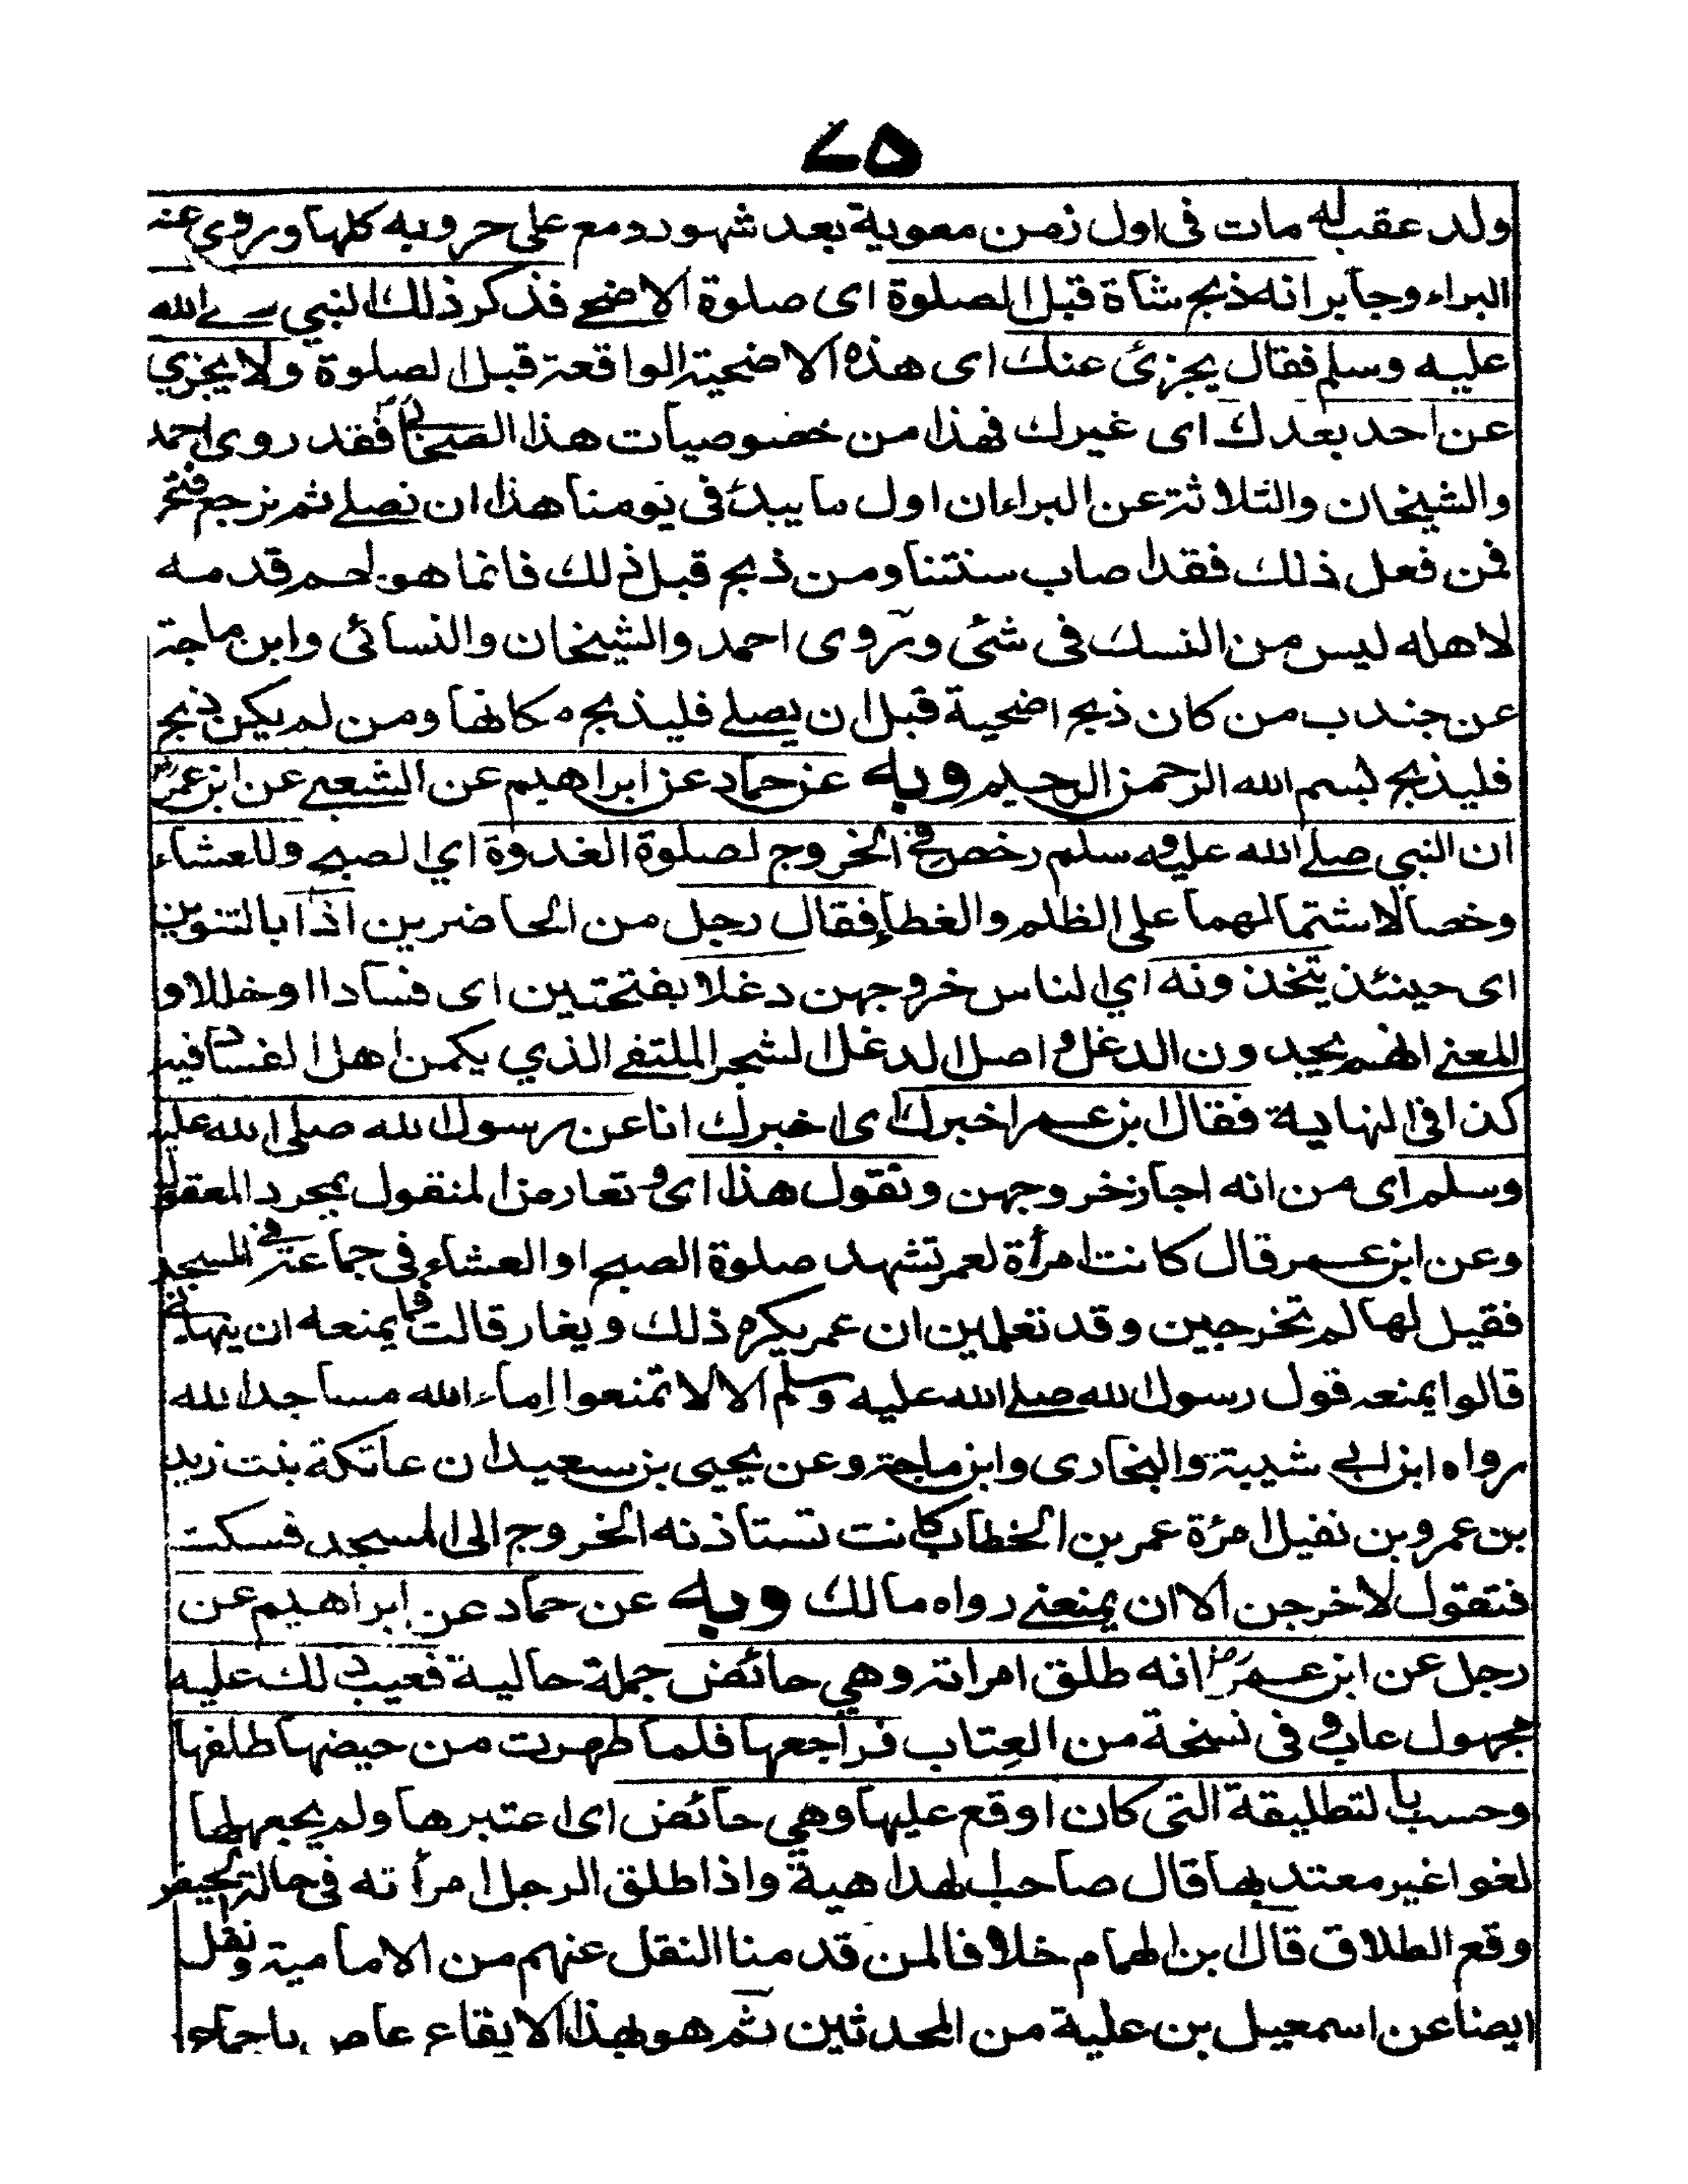 ٧٥
ولد عقب له مات فى اول زمن معوية بعد شهوده مع على حروبه كلها وروي عنه
البراء وجابر انه ذبح شاة قبل الصلوة اى صلوة الاضحى فذكر ذلك النبي صلے الله
عليه وسلم فقال يجزئ عنك اى هذه الاضحية الواقعة قبل الصلوة ولا يجزي
عن احد بعدك اى غيرك فهذا من خصوصيات هذا الصحابي فقد روى احمد
والشيخان والثلاثة عن البراء ان اول ما يبدئ فى يومنا هذا ان نصلے ثم نرجع فنحر
فمن فعل ذلك فقد اصاب سنتنا ومن ذبح قبل ذلك فانما هو لحم قدمه
لاهله ليس من النسك فى شئ وروى احمد والشيخان والنسائى وابن ماجة
عن جندب من كان ذبح اضحية قبل ان يصلے فليذبح مكانها ومن لم يكن ذبح
فليذبح بسم الله الرحمن الرحيم وبه عن حماد عن ابراهيم عن الشعبے عن ابن عمر رض
ان النبي صلے الله عليه وسلم رخص فى الخروج لصلوة الغدوة اي الصبح وللعشاء
وخصا لاشتمالهما على الظلم والغطاء فقال رجل من الحاضرين اذا بالتنوين
اى حينئذ يتخذونه اي الناس خروجهن دغلا بفتحتين اى فسادا او خللا و
المعنے انهم يجدون الدغل و اصل الدغل الشجر الملتف الذي يكمن اهل الفساد فيه
كذا فى النهاية فقال ابن عمر اخبرك اى اخبرك انا عن رسول الله صلى الله عليه
وسلم اى من انه اجاز خروجهن وتقول هذا اى وتعارض المنقول بمجرد المعقول
وعن ابن عمر قال كانت امرأة لعمر تشهد صلوة الصبح او العشاء فى جماعة فى المسجد
فقيل لها لم تخرجين وقد تعلمين ان عمر يكره ذلك ويغار قالت فما يمنعه ان ينهانى
قالوا يمنعه قول رسول الله صلے الله عليه وسلم الا لا تمنعوا اماء الله مساجد الله
رواه ابن ابي شيبة والبخارى وابن ماجة وعن يحيى بن سعيد ان عاتكة بنت زيد
بن عمرو بن نفيل امرئة عمر بن الخطاب كانت تستاذنه الخروج الى المسجد فسكت
فتقول لاخرجن الا ان يمنعنے رواه مالك وبه عن حماد عن ابراهيم عن
رجل عن ابن عمر رض انه طلق امراته وهي حائض جملة حالية فعيب ذلك عليه
مجهول عاب و فى نسخة من العتاب فراجعها فلما طهرت من حيضها طلقها
وحسب بالتطليقة التى كان اوقع عليها وهي حائض اى اعتبرها ولم يجعلها
لغوا غير معتد بها قال صاحب الهداهية واذا طلق الرجل امرأته فى حالة الحيض
وقع الطلاق قال ابن الهمام خلافا لمن قدمنا النقل عنهم من الامامية ونقل
ايضا عن اسمعيل بن علية من المحدثين ثم هو بهذا الايقاع عاص باجماع